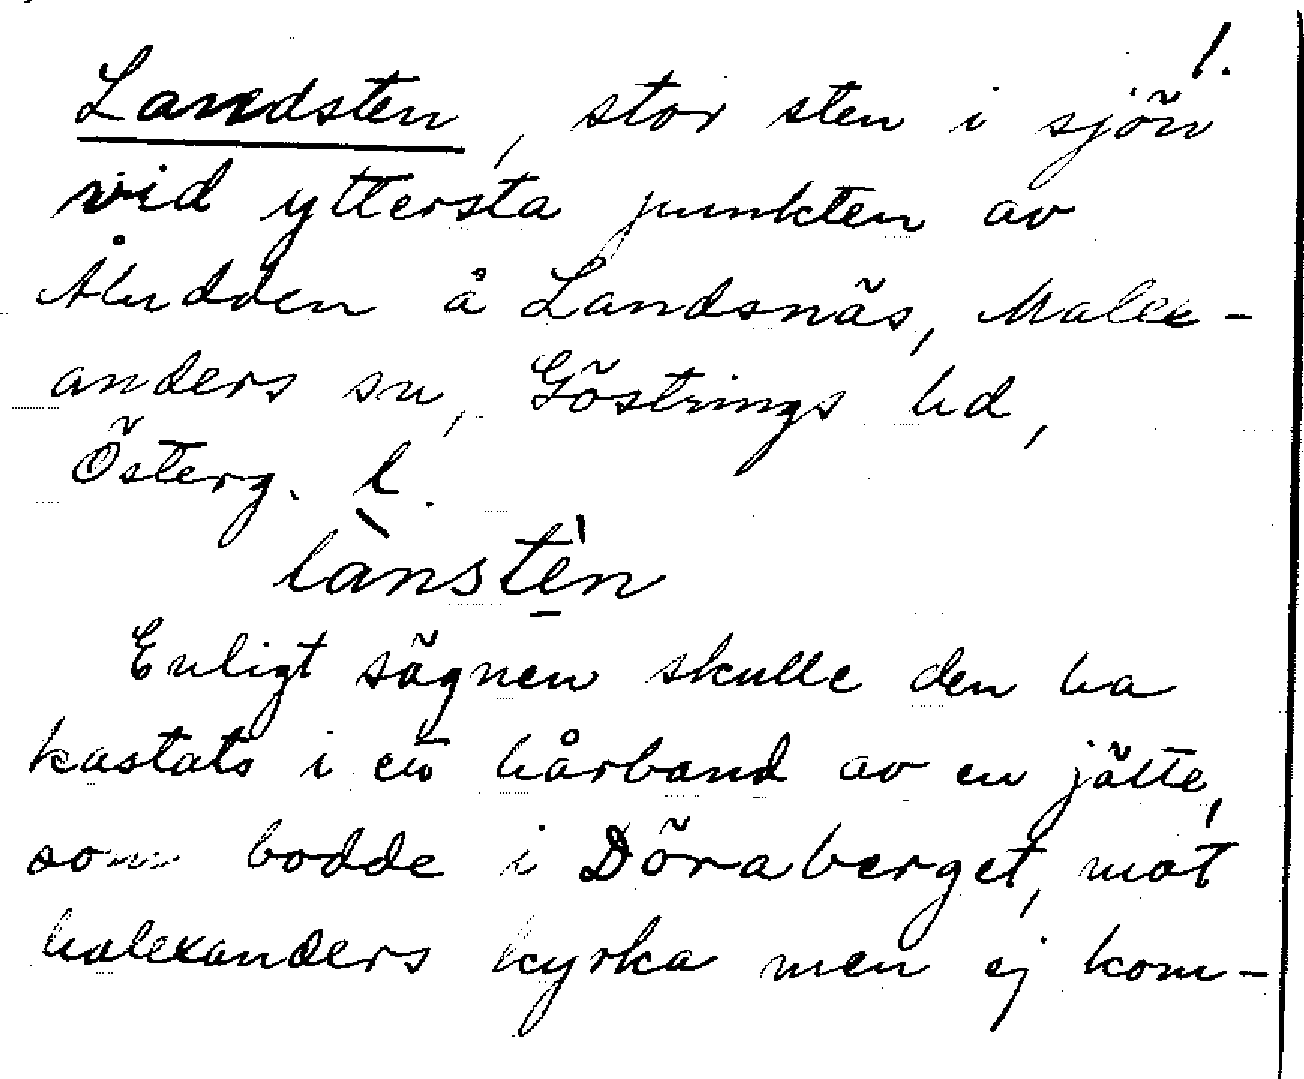 1.
Landsten, stor sten i sjön
vid yttersta punkten av
Åudden å Landsnäs, Malex-
anders sn, Göstrings hd,
Österg. l.
lànstèn
Enligt sägnen skulle den ha
kastats i ett hårband av en jätte,
som bodde i Döraberget, mot
Malexanders kyrka men ej kom-